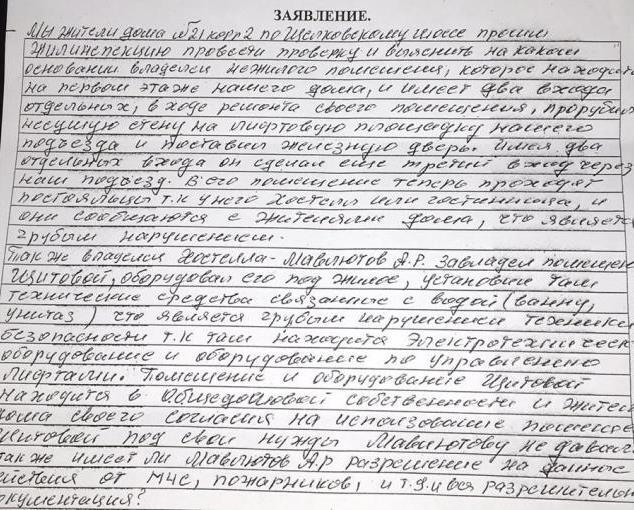 ЗАЯВЛЕНИЕ.
Мы жители дома №21 корп2 по Щелковскому шоссе просим
жилинспекцию провести проверку и выяснить на каком
основании владелец нежилого помещения, которое находит
на первом этаже нашего дома, и имеет два входа
отдельных, в ходе ремонта своего помещения, прорубил
несущую стену на лифтовую площадку нашего
подъезда и поставил железную дверь. Имея два
отдельных входа он сделал еще третий вход через
наш подъезд. В его помещение теперь проходят
постояльцы т.к у него хостел или гостиница, и
они сообщаются с жителями дома, что являетс
грубым нарушением.
Также владелец Хостелла- Мавлютов А.Р. Завладел помещен
Щитовой, оборудовал его под жилое, установил там
технические средства связанные с водой (ванну,
унитаз) что является грубым нарушением техники
безопасности т.к там находится Электротехническ
оборудование и оборудование по управлению
лифтами. Помещение и оборудование Щитовой
находится в Общедомовой собственности и жител
дома своего согласия на использование помещен
Щитовой под свои нужды Мавлютову не давал
также имеет ли Мавлютов А.Р разрешение на данные
ействия от МЧС, пожарников, и т.д и вся разрешительн
окументация?